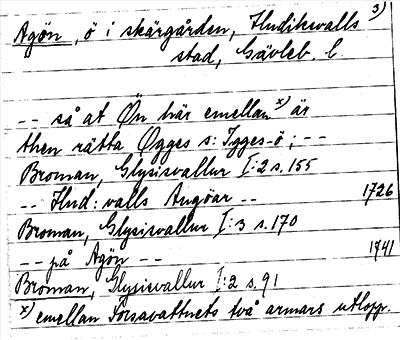 3)
Agön, ö i skärgården, Hudiksvalls
stad, Gävleb. l.
-- så at Ön här emellan x) är
then rätta Ogges s: Igges-ö; --
Broman, Glysisvallur I:2 s. 155
-- Hud: valls Angöar -- 1726
Broman, Glysisvallur I:3 s. 170
-- på Agön -- 1741
Broman, Glysisvallur I:2 s. 91
x) emellan Försavattnets två armars utlopp.